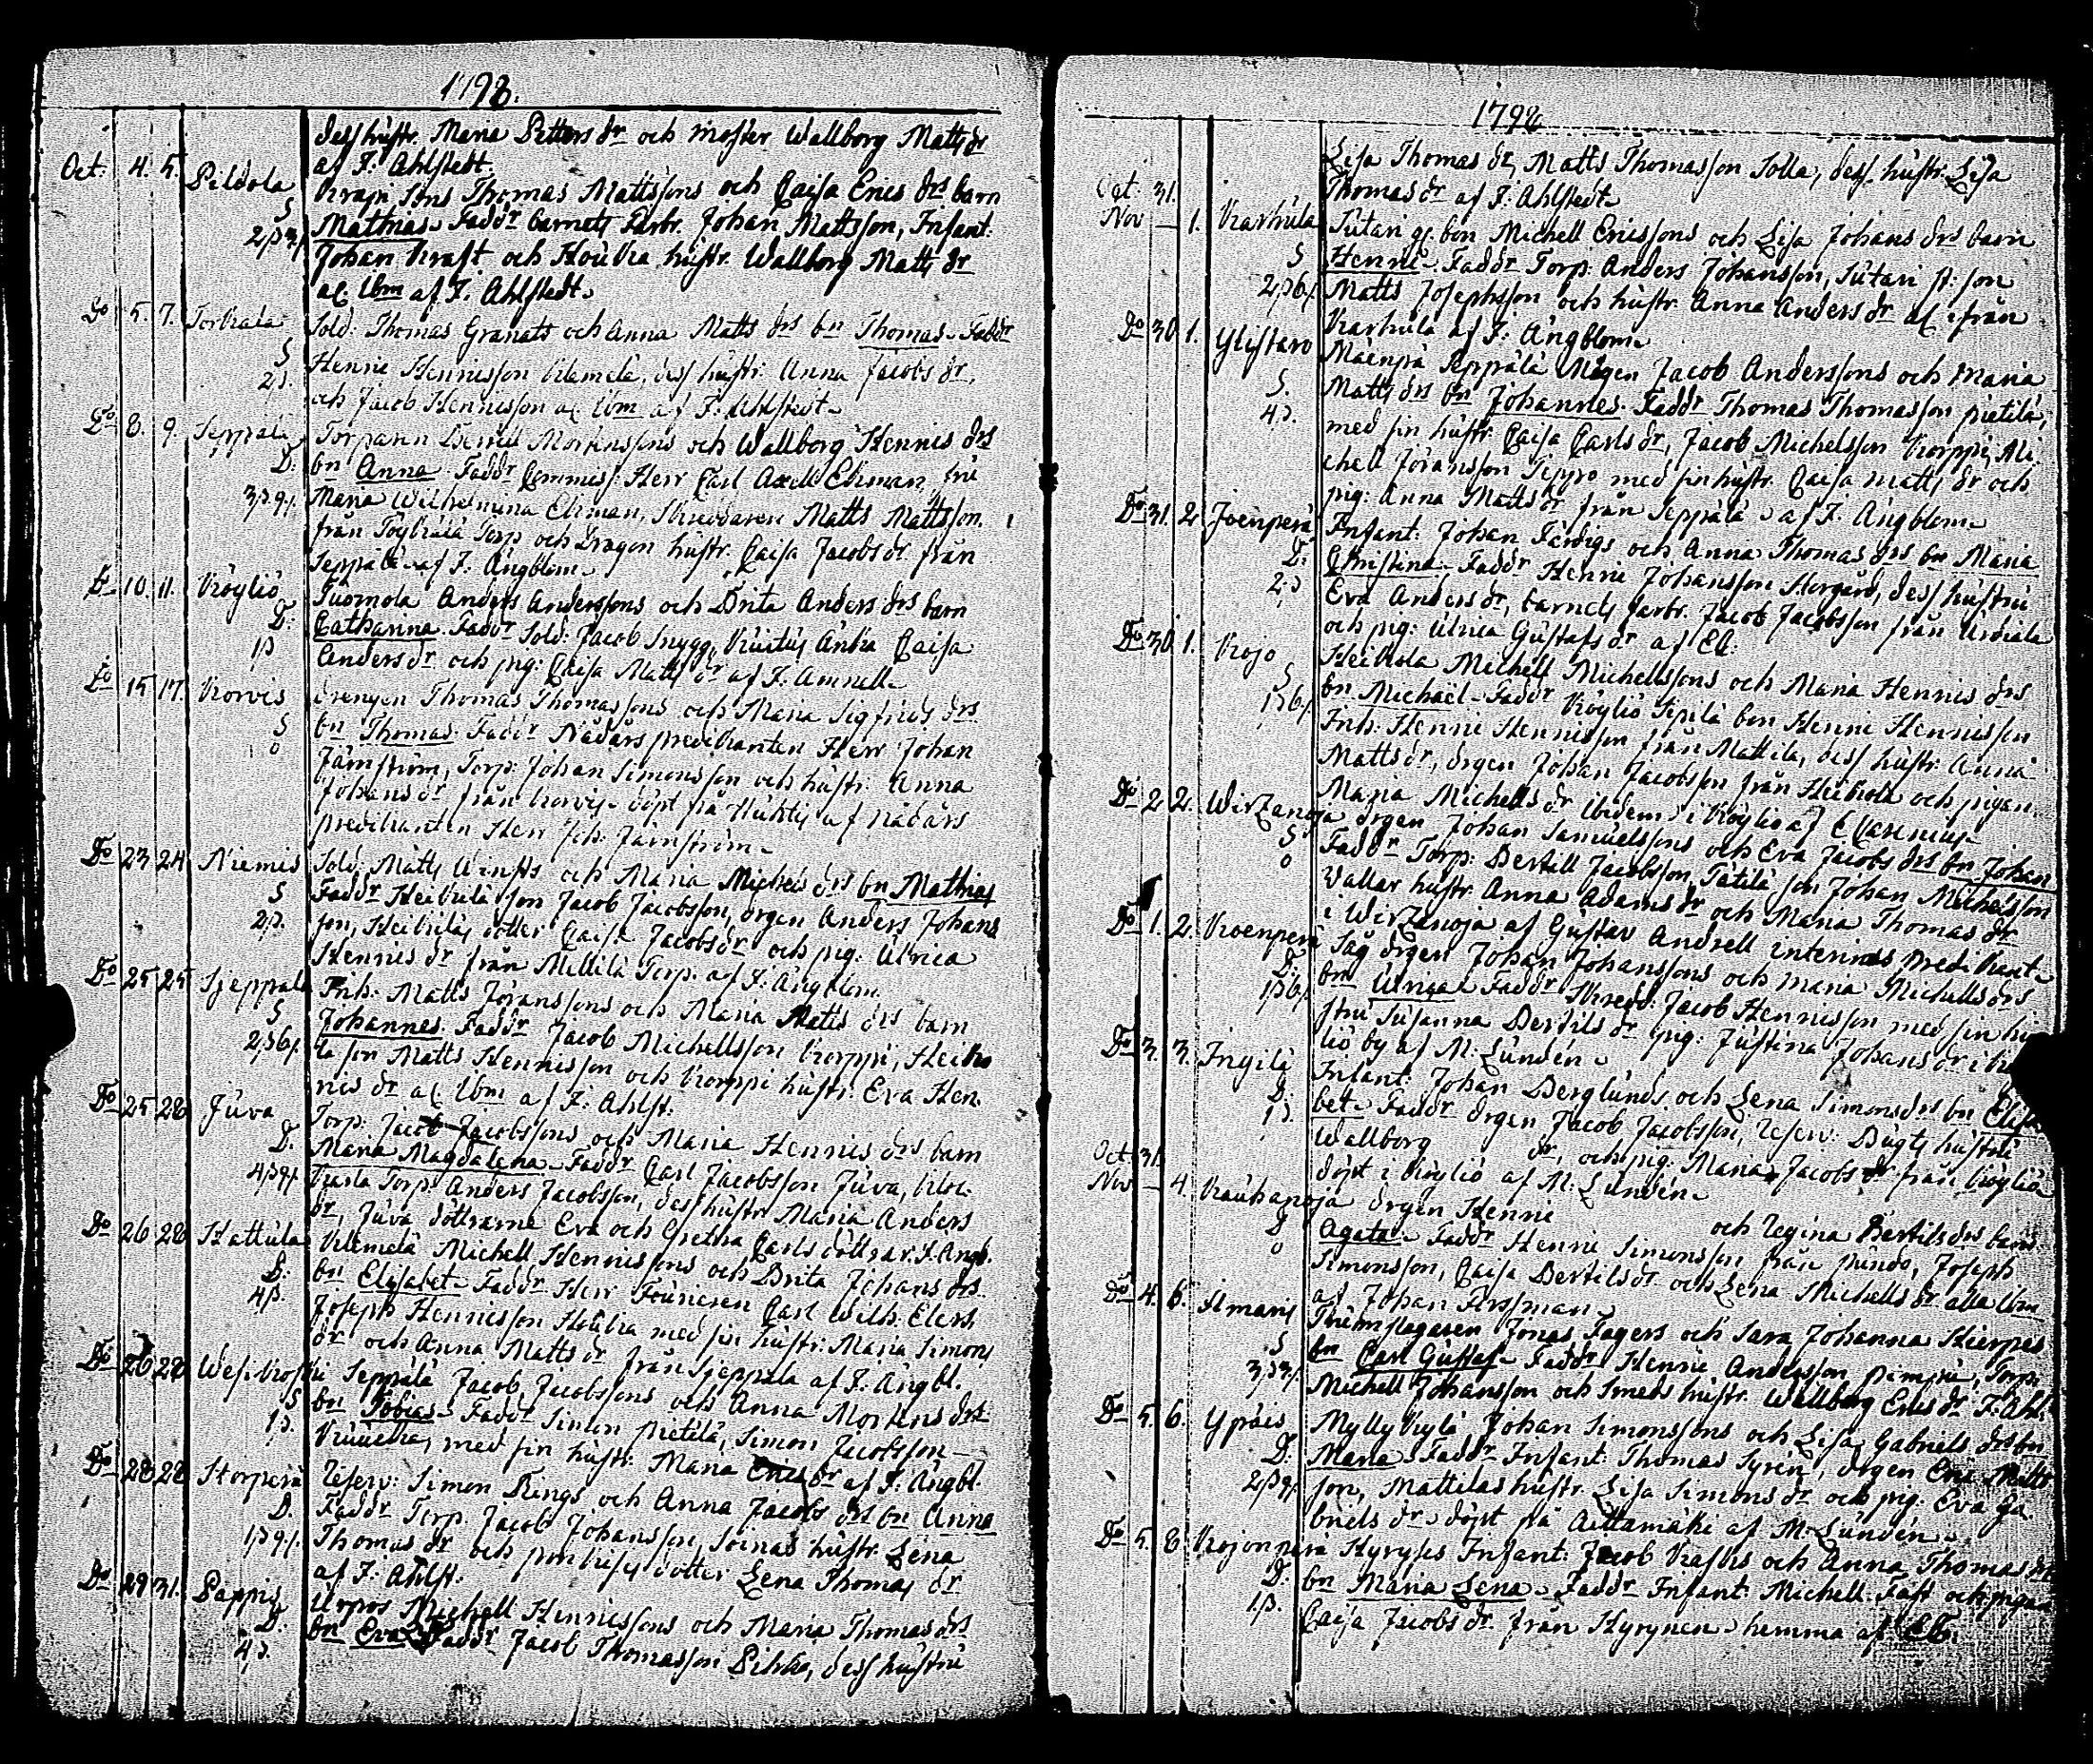 1798.
dess hustr. Maria Petters dr och moster Wallborg Matts dr
af J: Ahlstedt.
Oct: 4. 5. Pildola Krapi Sons Thomas Mattssons och Caisa Erics drs barn
S Mathias. Faddr barnets Farbr. Johan Mattsson, Infant:
2ß Johan Kraft och Koukka hustr. Wallborg Matts dr
al. ibm af J. Ahlstedt.
Do 5. 7. Torkala Sold: Thomas Granats och Anna Matts drs bn Thomas. Faddr
S Henric Henricsson Klemelä, dess hustr: Anna Jacobs dr,
2ß. och Jacob Henricsson al. ibm af J: Ahlstedt.
Do 8. 9. Seppälä Torparen Henric Mortenssons och Wallborg Henrics drs
D: bn Anna. Faddr Commis: Herr Carl Axell Ekman, fru
3ß 9. Maria Wilhelmina Ekman, Skreddaren Matts Mattsson
från Torp och Dragon hustr. Caisa Jacobs dr. från
Seppälä af J. Ängblom.
Do 10. 11. Köyliö Tuomola Anders Anderssons och Brita Anders drs barn
D: Catharina. Faddr Sold: Jacob Snygg, Änka Caisa
1ß Anders dr och pig: Caisa Matts dr af J: Amnell.
Do 15 17. Korvis drengen Thomas Thomassons och Maria Sigfrids drs
S bn Thomas. Faddr Nådårs predikanten Herr Johan
0 Jämström, Torp: Johan Simonsson och hustr: Anna
Johans dr från Korvis. döpt på Huhtis af nådårs
predikanten Herr Joh: Jämström.
Do 23 24 Niemis Sold: Matts och Maria Michels drs bn Mathias
S Faddr Heikkilä son Jacob Jacobsson, drgen Anders Johans
2ß. son, Heikkilä dotter Caisa Jacobs dr och pig: Ulrica
Henrics dr från Millilä Torp. af J: Ängblom.
Do 25 25 Sjeppälä Inh: Matts Jöranssons och Maria Matts drs barn
S Johannes. Faddr Jacob Michellsson Korppi, Heikki
2ß 6. la son Matts Henricsson och Korppi hustr: Eva Hen.
rics dr al. ibm af J: Ahlst.
Do 25 28 Juva Torp: Jacob Jacobssons och Maria Henrics drs barn
D. Maria Magdalena. Faddr Carl Jacobsson Juva,
4ß 9. Torp: Anders Jacobsson, dess hustr Maria Anders
dr, Juva döttrarne Eva och Gretha Carls döttrar. J. Ängb.
Do 26 28 Hattula Klemelä Michell Henricssons och Brita Johans drs
D: bn Elisabet. Faddr Herr Fouriren Carl Wilh: Elers,
4ß. Joseph Henricsson Houkka med sin hustr: Maria Simons
dr och Anna Matts dr från Sjeppälä af J. Ängbl.
Do 26 28 Wesikoski Seppälä Jacob Jacobssons och Anna Mortens drs
S bn Tobias. Faddr Simon Pietilä, Simon Jacobsson
1ß. med sin hustr: Maria Erics dr af J: Ängbl.
Do 28 28 Storperä Reserv: Simon Rings och Anna Jacobs drs bn Anna
D. Faddr Torp. Jacob Johansson, Soinas hustr. Lena
1ß 9. Thomas dr och dotter Lena Thomas dr
af J: Ahlst.
Do 29 31. Pappis Uopos Michell Henricssons och Maria Thomas drs
D. bn Eva. Faddr Jacob Thomasson Pihko, dess hustru
4ß.
1798
Lisa Thomas dr, Matts Thomasson Tolla, dess hustr. Lisa
Thomas dr af J: Ahlstedt.
Oct. 31.
Nov — 1. Karhula Sutari gl. bon Michell Ericssons och Lisa Johans drs barn
S Henric. Faddr Torp: Anders Johansson, Sutari st: son
2ß 6. Matts Josephsson och hustr. Anna Anders dr al. från
Karhula af J: Ängblom.
Do 30 1. Ylistaro Mäenpä Seppälä Mågen Jacob Anderssons och Maria
S. Matts drs bn Johannes. Faddr Thomas Thomasson Pietilä,
4ß. med sin hustr: Caisa Carls dr, Jacob Michelsson Korppi, Mi
chell Jöransson Seppo med sin hustr. Caisa Matts dr och
pig: Anna Matts dr från Seppälä af J. Ängblom.
Do 31 2. Joenperä Infant: Johan Färdigs och Anna Thomas drs bn Maria
D. Christina. Faddr Henric Johansson Storgård, dess hustru
2ß Eva Anders dr, barnets farbr. Jacob Jacobsson från Urdiala
och pig: Ulrica Gustafs dr af El:
Do 30 1. Kojo Heikkola Michell Michellssons och Maria Henrics drs
S bn Michaël. Faddr Köyliö Sipilä bon Henric Henricsson
1ß 6. Inh: Henric Henricsson från Mattila, dess hustr. Anna
Matts dr, drgen Johan Jacobsson från Heikkola och pigan
Maria Michells dr ibidem i Köyliö af C Carenius.
Do 2 2. Wirtzanoja drgen Johan Samuelssons och Eva Jacobs drs bn Johan
S Faddr Torp: Bertill Jacobsson, Tatilä son Johan Michelsson
0 Vallar hustr. Anna Adams dr och Maria Thomas dr
i Wirtzanoja af Gustav Andrell interims Predikant.
Do 1. 2. Koenperä Säg drgen Johan Johanssons och Maria Michells drs
D: bn Ulrica. Faddr Skredd: Jacob Henricsson med sin hu
1ß 6. stru Susanna Bertils dr pig: Justina Johans dr i
liö by af M: Lundén.
Do 3. 3. Ingilä Infant: Johan Berglunds och Lena Simons drs bn Elisa
D: bet. Faddr drgen Jacob Jacobsson, Reserv: Bugts hustru
1ß. Wallborg dr, och pig: Maria Jacobs dr från Köyliö
döpt i Köyliö af M: Lundén.
Oct 31
Nov — 4. Kauhanoja drgen Henric och Regina Bertils drs barn
D Agata. Faddr Henric Simonsson från Pundo, Joseph
0 Simonsson, Caisa Bertils dr och Lena Michells dr alla ibm
af Johan Forssman.
Do 4. 6. Ilmaris Trumslagaren Jonas Fagers och Sara Johanna Hierpes
S bn Carl Gustaf. Faddr Henric Andersson Pämppi, Torp:
3ß 3. Michell Johansson och Smeds hustr. Wallborg Erics dr J: Ahl:
Do 5. 6. Ypäis Myllykylä Johan Simonssons och Lisa Gabriels drs bn
D: Maria. Faddr Infant: Thomas Syren, drgen Eric Matts
2ß 9. son, Mattilas hustr. Lisa Simons dr och pig: Eva Ga
briels dr. döpt på Aittamäki af M: Lundén.
Do 5. 8 Kojonperä Hyryses Infant: Jacob Rasks och Anna Thomas dr
D: bn Maria Lena. Faddr Infant: Michell Fast och pigan
1ß. Caisa Jacobs dr från Hyrynen. hemma af El.